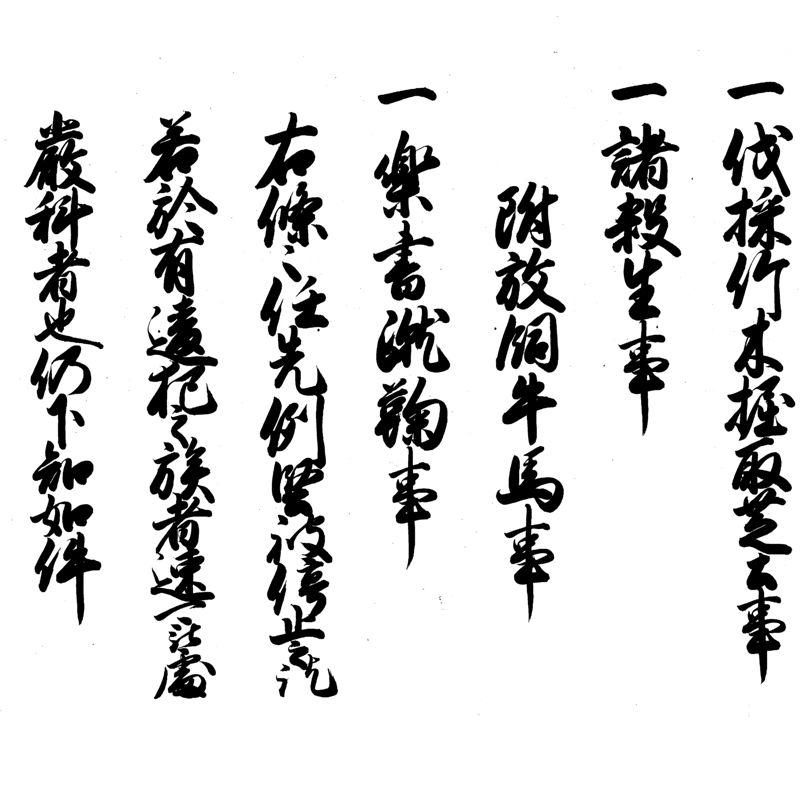 一伐採竹木掘取芝事
一諸殺生事
附放飼牛馬事
一樂書蹴鞠事
右條〻任先例堅被停止之訖
若於有違犯之族者速可被處
嚴科者也仍下知如件